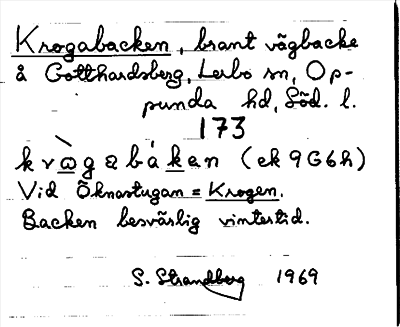 Krogabacken, brant vägbacke
å Gotthardsberg, Lerbo sn, Op-
punda hd, Söd. l.
173
krωgabákan (ek 9G6h)
Vid Öknastugan = Krogen.
Backen besvärlig vintertid.
S. Strandberg 1969